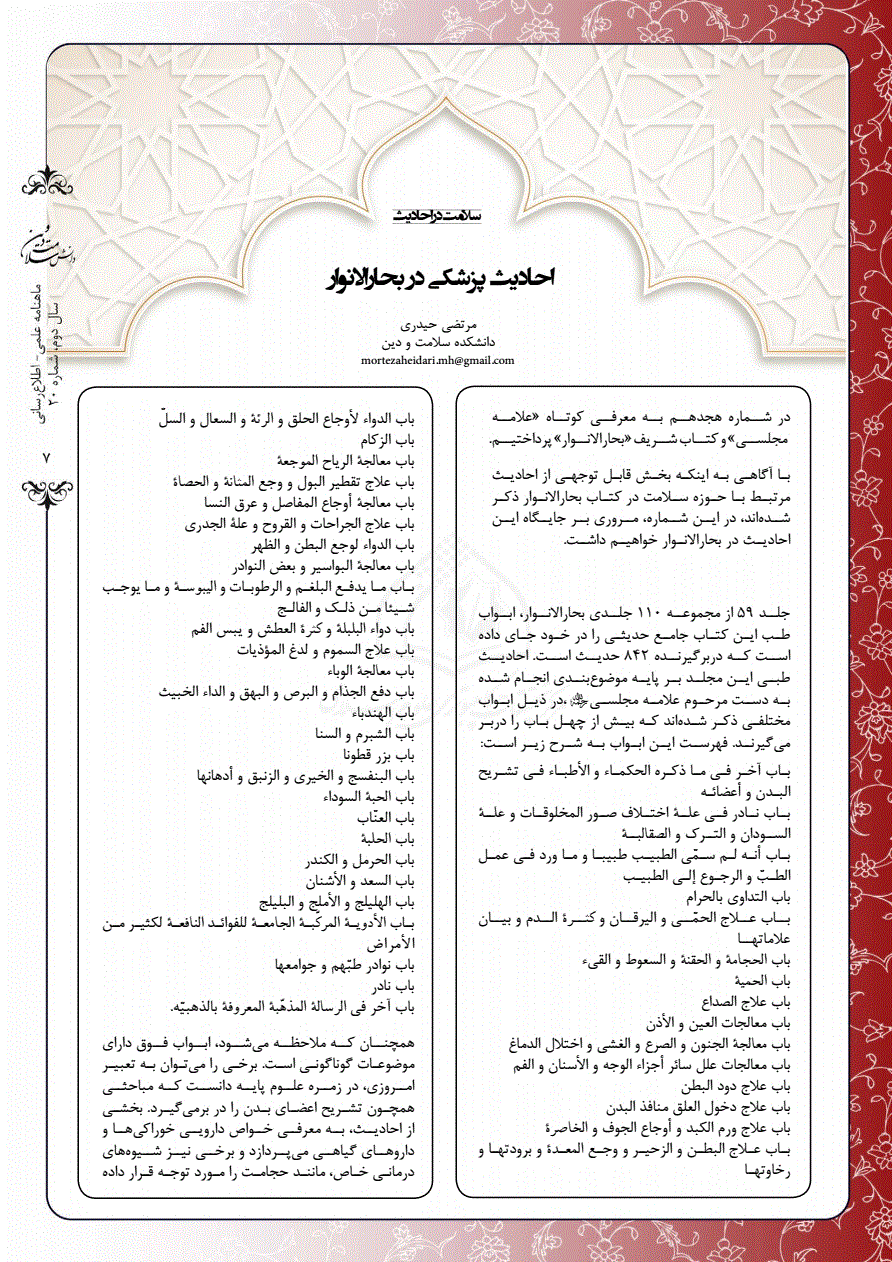 سلامت در احادیث
احادیث پزشکی در بحارالانوار
مرتضی حیدری
دانشکده سلامت و دین
mortezaheidari.mh@gmail.com
دانش سلامت و دین
ماهنامه علمی - اطلاع‌رسانی
سال دوم، شماره ۲۰
۷
در شـــماره هجدهـــم بـــه معرفـــی کوتـــاه «علامـــه
مجلســـی» و کتـــاب شـــریف «بحارالانـــوار» پرداختیـــم.
بـا آگاهـی بـه اینکـه بخـش قابـل توجهـی از احادیـث
مرتبـط بـا حـوزه سـلامت در کتـاب بحارالانـوار ذکـر
شـده‌اند، در ایـن شـماره، مـروری بـر جایـگاه ایـن
احادیـث در بحارالانـوار خواهیـم داشـت.
جلـد ۵۹ از مجموعـه ۱۱۰ جلـدی بحارالانـوار، ابـواب
طـب ایـن کتـاب جامـع حدیثـی را در خـود جـای داده
اسـت کـه دربرگیرنـده ۸۴۲ حدیـث اسـت. احادیـث
طبـی ایـن مجلـد بـر پایـه موضوع‌بنـدی انجـام شـده
بـه دسـت مرحـوم علامـه مجلسـی، در ذیـل ابـواب
مختلفـی ذکـر شـده‌اند کـه بیـش از چهـل بـاب را دربـر
می‌گیرنـد. فهرسـت ایـن ابـواب بـه شـرح زیـر اسـت:
بـاب آخـر فـی مـا ذکـره الحکمـاء و الأطبـاء فـی تشـریح
البـدن و أعضائـه
بـاب نـادر فـی علـة اختـلاف صـور المخلوقـات و علـة
السـودان و التـرک و الصقالبـة
بـاب أنـه لـم سـمّی الطبیـب طبیبـا و مـا ورد فـی عمـل
الطـبّ و الرجـوع إلـی الطبیـب
باب التداوی بالحرام
بـاب عـلاج الحمّـی و الیرقـان و کثـرة الـدم و بیـان
علاماتهـا
باب الحجامة و الحقنة و السعوط و القیء
باب الحمیة
باب علاج الصداع
باب معالجات العین و الأذن
باب معالجة الجنون و الصرع و الغشی و اختلال الدماغ
باب معالجات علل سائر أجزاء الوجه و الأسنان و الفم
باب علاج دود البطن
باب علاج دخول العلق منافذ البدن
باب علاج ورم الکبد و أوجاع الجوف و الخاصرة
بـاب عـلاج البطـن و الزحیـر و وجـع المعـدة و برودتهـا و
رخاوتهـا
باب الدواء لأوجاع الحلق و الرئة و السعال و السلّ
باب الزکام
باب معالجة الریاح الموجعة
باب علاج تقطیر البول و وجع المثانة و الحصاة
باب معالجة أوجاع المفاصل و عرق النسا
باب علاج الجراحات و القروح و علة الجدری
باب الدواء لوجع البطن و الظهر
باب معالجة البواسیر و بعض النوادر
بـاب مـا یدفـع البلغـم و الرطوبـات و الیبوسـة و مـا یوجـب
شـیئا مـن ذلـک و الفالـج
باب دواء البلبلة و کثرة العطش و یبس الفم
باب علاج السموم و لدغ المؤذیات
باب معالجة الوباء
باب دفع الجذام و البرص و البهق و الداء الخبیث
باب الهندباء
باب الشبرم و السنا
باب بزر قطونا
باب البنفسج و الخیری و الزنبق و أدهانها
باب الحبة السوداء
باب العنّاب
باب الحلبة
باب الحرمل و الکندر
باب السعد و الأشنان
باب الهلیلج و الأملج و البلیلج
بـاب الأدویـة المرکّبـة الجامعـة للفوائـد النافعـة لکثیـر مـن
الأمراض
باب نوادر طبّهم و جوامعها
باب نادر
باب آخر فی الرسالة المذهّبة المعروفة بالذهبیّه.
همچنـان کـه ملاحظـه می‌شـود، ابـواب فـوق دارای
موضوعـات گوناگونـی اسـت. برخـی را می‌تـوان بـه تعبیـر
امـروزی، در زمـره علـوم پایـه دانسـت کـه مباحثـی
همچـون تشـریح اعضـای بـدن را در برمی‌گیـرد. بخشـی
از احادیـث، بـه معرفـی خـواص دارویـی خوراکی‌هـا و
داروهـای گیاهـی می‌پـردازد و برخـی نیـز شـیوه‌های
درمانـی خـاص، ماننـد حجامـت را مـورد توجـه قـرار داده